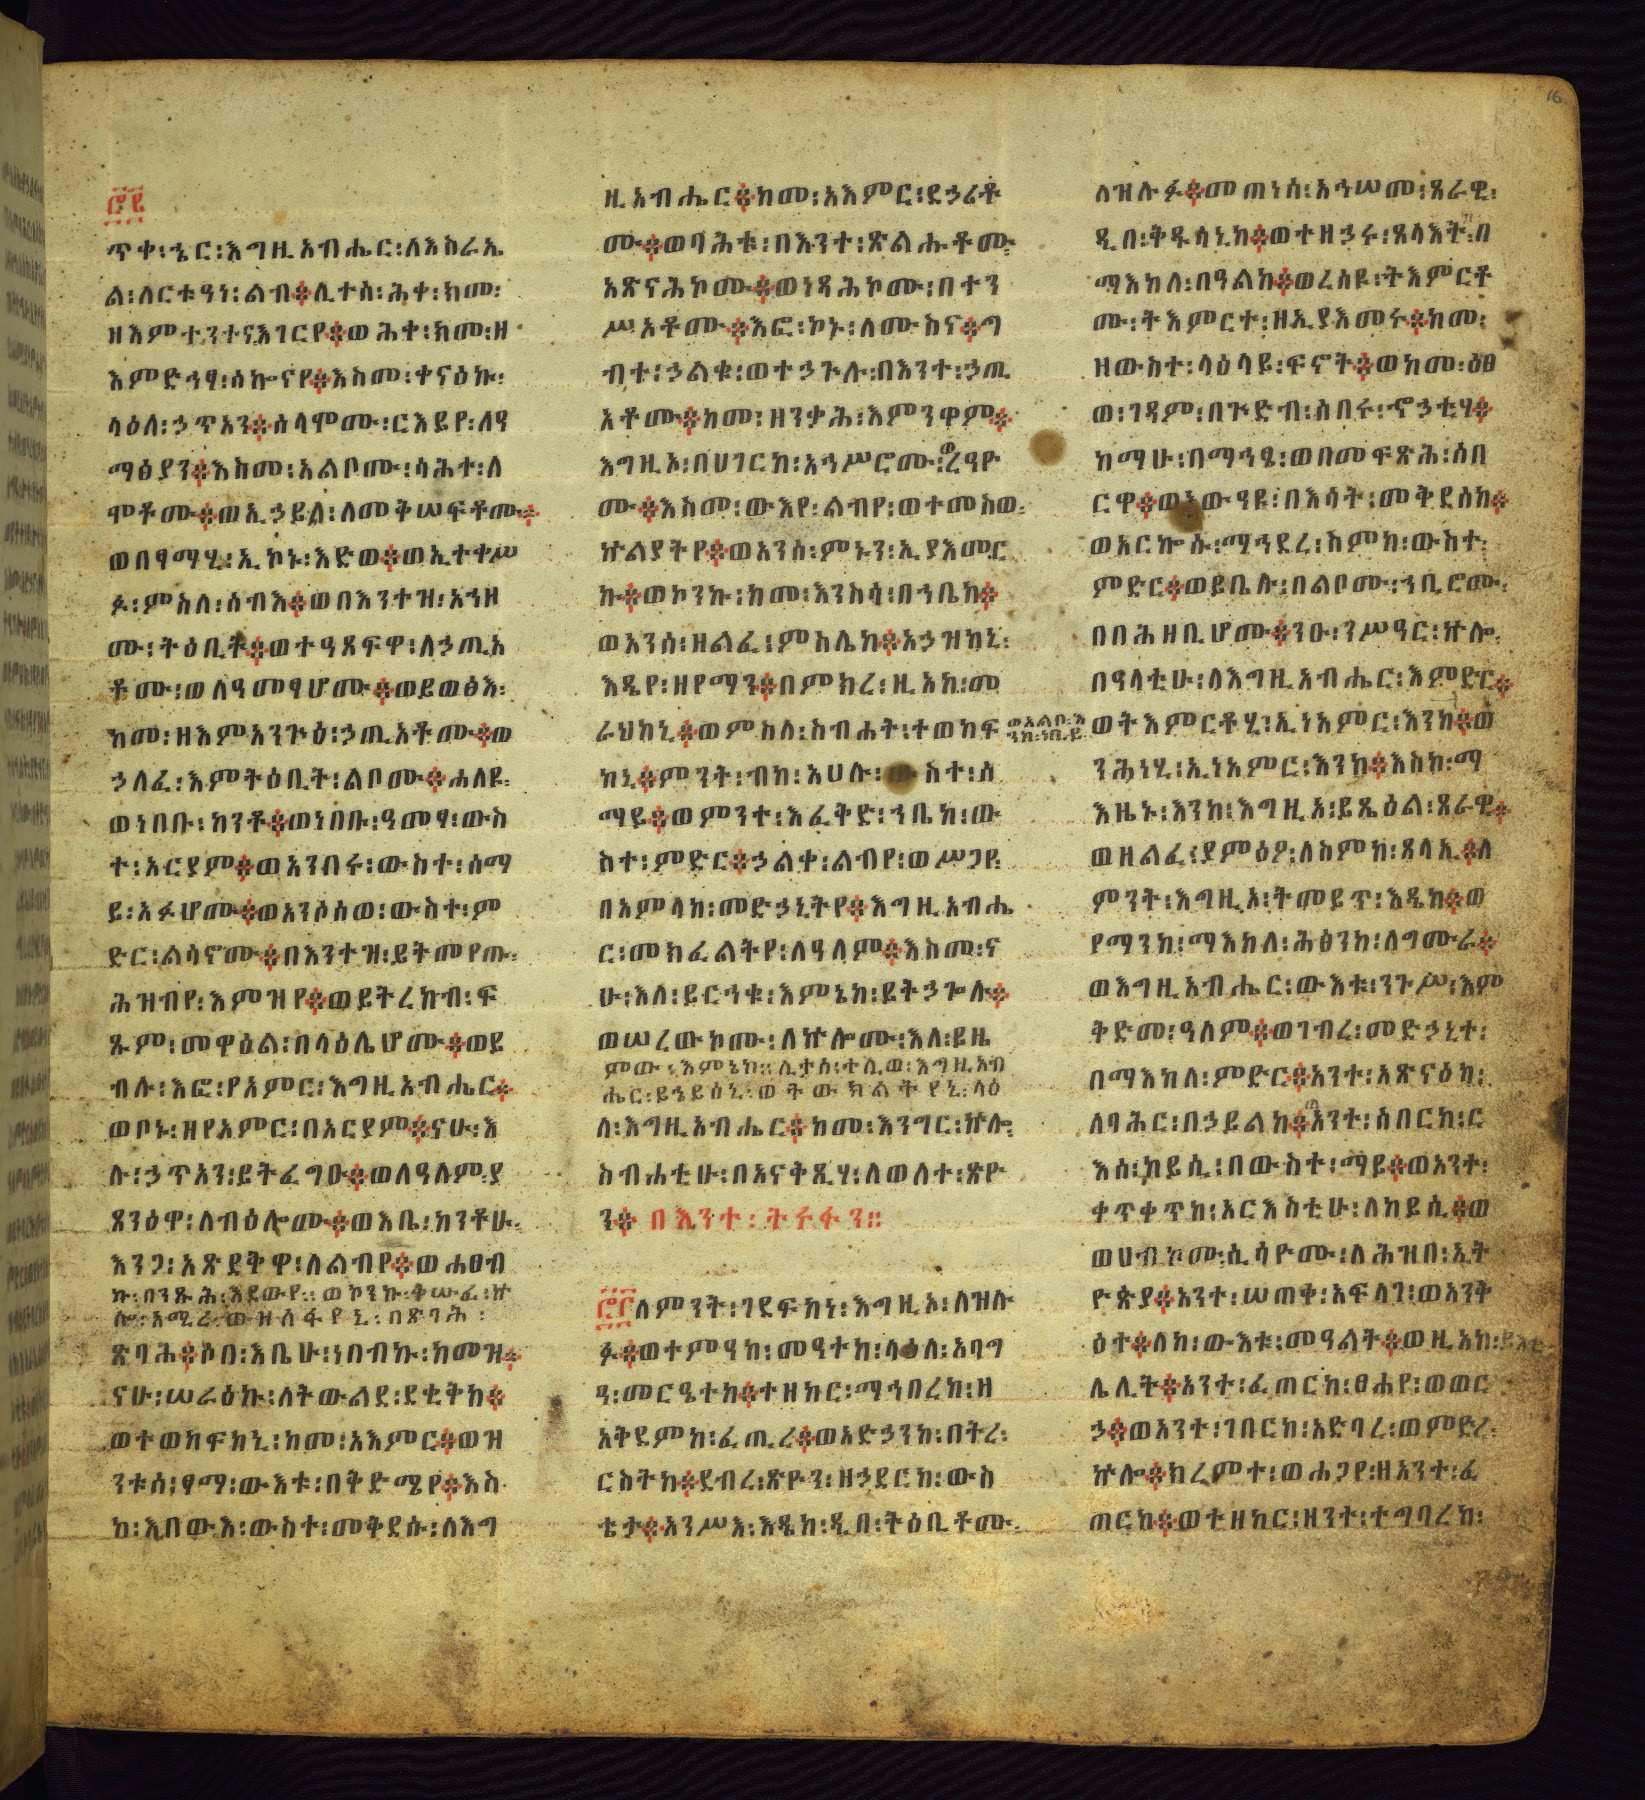 16
ጥቀ፡ኄር፡እግዚአብሔር፡ለእስራኤ
ል፡ለርቱዓነ፡ልብ፨ሊተሰ፡ሕቀ፡ክመ፡
ዘእምተንተናእገርየ፨ወሕቀ፡ክመ፡ዘ
እምድኅፃ፡ሰኰናየ፨እስመ፡ቀናዕኩ፡
ላዕለ፡ኃጥአን፨ሰላሞሙ፡ርእይየ፡ለዓ
ማፅያን፨እስመ፡አልቦሙ፡ሳሕተ፡ለ
ሞቶሙ፨ወኢኃይለ፡ለመቅሠፍቶሙ፨
ወበፃማሂ፡ኢኮኑ፡እድወ፨ወኢተቀሥ
ፉ፡ምስለ፡ሰብእ፨ወበእንተዝ፡አኀዘ
ሙ፡ትዕቢት፨ወተዓጸፍዋ፡ለኃጢአ
ቶሙ፡ወለዓመፃሆሙ፨ወይወፅእ፡
ከመ፡ዘእምአንጕዕ፡ኃጢአቶሙ፨ወ
ኃለፈ፡እምትዕቢት፡ልቦሙ፨ሐለዩ፡
ወነበቡ፡ከንቶ፨ወነበቡ፡ዓመፃ፡ውስ
ተ፡አርያም፨ወአንበሩ፡ውስተ፡ሰማ
ይ፡አፉሆሙ፨ወአንሶሰወ፡ውስተ፡ም
ድር፡ልሳኖሙ፨በእንተዝ፡ይትመየጡ፡
ሕዝብየ፡እምዝየ፨ወይትረከብ፡ፍ
ጹም፡መዋዕል፡በላዕሌሆሙ፨ወይ
ብሉ፡እፎ፡የአምር፡እግዚአብሔር፨
ወቦኑ፡ዘየአምር፡በአርያም፨ናሁ፡እ
ሉ፡ኃጥአን፡ይትፈግዑ፨ወለዓለም፡ያ
ጸንዕዋ፡ለብዕሎሙ፨ወእቤ፡ከንቶሁ፡
እንጋ፡አጽደቅዋ፡ለልብየ፨ወሐፀብ
ኩ፡በንጹሕ፡እደውየ፡፡ወኮንኩ፡ቅሡፈ፡ኵ
ሎ፡አሚረ፡ወዘለፋየኒ፡በጽባሕ፡
ጽባሕ፨ሶበ፡እቤሁ፡ነበብኩ፡ከመዝ፨
ናሁ፡ሠራዕኩ፡ለትውልደ፡ደቂቅከ፨
ወተወከፍክኒ፡ከመ፡አእምር፨ወዝ
ንቱሰ፡ፃማ፡ውእቱ፡በቅድሜየ፨እስ
ከ፡እበውእ፡ውስተ፡መቅደሱ፡ለእግ
ዚአብሔር፨ከመ፡አእምር፡ደኃሪቶ
ሙ፨ወባሕቱ፡በእንተ፡ጽልሑቶሙ፡
አጽናሕኮሙ፨ወነጻሕኮሙ፡በተን
ሥኦቶሙ፨እፎ፡ኮኑ፡ለሙስና፨ግ
ብተ፡ኃልቁ፡ወተኃጕሉ፡በእንተ፡ኃጢ
አቶሙ፨ከመ፡ዘንቃሕ፡እምንዋም፨
እግዚኦ፡በሀገርከ፡አኅሥሮሙ፡ረዓዮ
ሙ፨እስመ፡ውእየ፡ልብየ፡ወተመስወ፡
ኵልያትየ፨ወአንሰ፡ምኑን፡ኢያእመር
ኩ፨ወኮንኩ፡ከመ፡እንስሳ፡በኀቤከ፨
ወአንሰ፡ዘልፈ፡ምስሌከ፨አኃዝከኒ፡
እዴየ፡ዘየማን፨በምክረ፡ዚአከ፡መ
ራህከኒ፨ወምስለ፡ስብሐት፡ተወከፍ
ከኒ፨ምንት፡ብከ፡አሀሉ፡ውስተ፡ሰ
ማይ፨ወምንተ፡እፈቅድ፡ኀቤከ፡ው
ስተ፡ምድር፨ኃልቀ፡ልብየ፡ወሥጋየ፡
በአምላከ፡መድኃኒትየ፨እግዚአብሔ
ር፡መክፈልትየ፡ለዓለም፨እስመ፡ና
ሁ፡እለ፡ይርኅቁ፡እምኔከ፡ይትኃጐሉ፨
ወሠረውኮሙ፡ለኵሎሙ፡እለ፡ይዜ
ምው፡እምኔከ፡፡ሊተሰ፡ተሊወ፡እግዚአብ
ሔር፡ይኄይሰኒ፡ወትውክልትየኒ፡ላዕ
ለ፡እግዚአብሔር፨ከመ፡እንግር፡ኵሎ፡
ስብሐቲሁ፡በአናቅጺሃ፡ለወለተ፡ጽዮ
ን፨በእንተ፡ትሩፋን፡፡
ለምንት፡ገደፍከነ፡እግዚኦ፡ለዝሉ
ፉ፨ወተምዓከ፡መዓተከ፡ላዕለ፡አባግ
ዓ፡መርዔተከ፨ተዘከር፡ማኅበረከ፡ዘ
አቅደምከ፡ፈጢረ፨ወአድኃንከ፡በትረ፡
ርስትከ፨ደብረ፡ጽዮን፡ዘኃደርከ፡ውስ
ቴታ፨አንሥእ፡እዴከ፡ዲበ፡ትዕቢቶሙ፡
ለዝሉፉ፨መጠነሰ፡አኅሠመ፡ጸራዊ፡
ዲበ፡ቅዱሳኒከ፨ወተዘኃሩ፡ጸላእት፡በ
ማእከለ፡በዓልከ፨ወረሰዩ፡ትእምርቶ
ሙ፡ትእምርተ፡ዘኢያእመሩ፨ከመ፡
ዘውስተ፡ላዕላይ፡ፍኖት፨ወከመ፡ዕፀ
ወ፡ገዳም፡በጕድብ፡ሰበሩ፡ኆኃቲሃ፨
ከማሁ፡በማኅፄ፡ወበመፍጽሕ፡ሰበ
ርዋ፨ወአውዓዩ፡በእሳት፡መቅደሰከ፨
ወአርኰሱ፡ማኅደረ፡ስምከ፡ውስተ፡
ምድር፨ወይቤሉ፡በልቦሙ፡ኀቢሮሙ፡
በበሕዘቢሆሙ፨ንዑ፡ንሥዓር፡ኵሎ፡
በዓላቲሁ፡ለእግዚአብሔር፡እምድር፨
ወትእምርቶሂ፡ኢነአምር፡እንከ፨ወ
ንሕነሂ፡ኢነአምር፡እንከ፨እስከ፡ማ
እዜኑ፡እንከ፡እግዚኦ፡ይጼዕል፡ጸራዊ፨
ወዘልፈ፡ያምዕዖ፡ለስምከ፡ጸላኢ፨ለ
ምንት፡እግዚኦ፡ትመይጥ፡እዴከ፨ወ
የማንከ፡ማእከለ፡ሕፅንከ፡ለግሙራ፨
ወእግዚአብሔር፡ውእቱ፡ንጉሥ፡እም
ቅድመ፡ዓለም፨ወገብረ፡መድኃኒተ፡
በማእከለ፡ምድር፨አንተ፡አጽናዕከ፡
ለባሕር፡በኃይልከ፨አንተ፡ሰበርከ፡ር
እሰ፡ከይሲ፡በውስተ፡ማይ፨ወአንተ፡
ቀጥቀጥከ፡አርእስቲሁ፡ለከይሲ፨ወ
ወሀብኮሙ፡ሲሳዮሙ፡ለሕዝበ፡ኢት
ዮጵያ፨አንተ፡ሠጠቀ፡አፍላገ፡ወአንቅ
ዕተ፨ለከ፡ውእቱ፡መዓልት፨ወዚአከ፡
ሌሊት፨አንተ፡ፈጠርከ፡ፀሐየ፡ወወር
ኃ፨ወአንተ፡ገበርከ፡አድባረ፡ወምድረ፡
ኵሎ፨ክረምተ፡ወሐጋየ፡ዘአንተ፡ፈ
ጠርከ፨ወተዘከር፡ዘንተ፡ተግባረከ፡